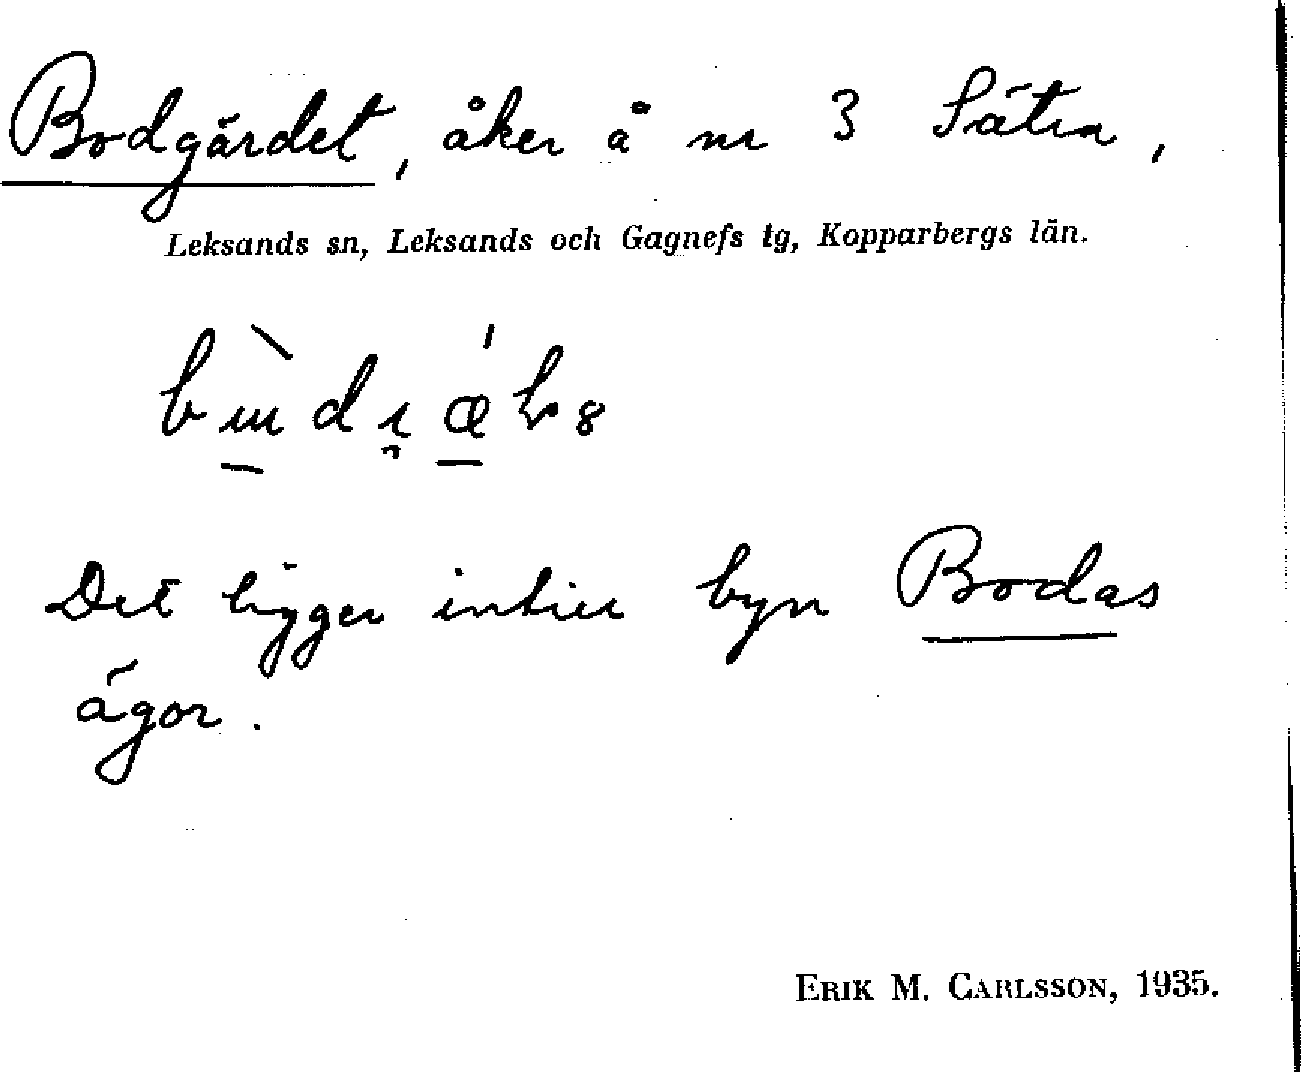 Bodgärdet, åker å nr 3 Sätra,
Leksands sn, Leksands och Gagnefs tg, Kopparbergs län.
Det ligger intill byn Bodas
ägor.
ERIK M. CARLSSON, 1935.